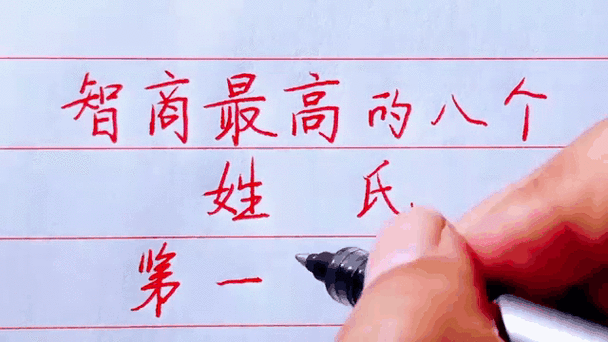 智商最高的八个
姓 氏
第一